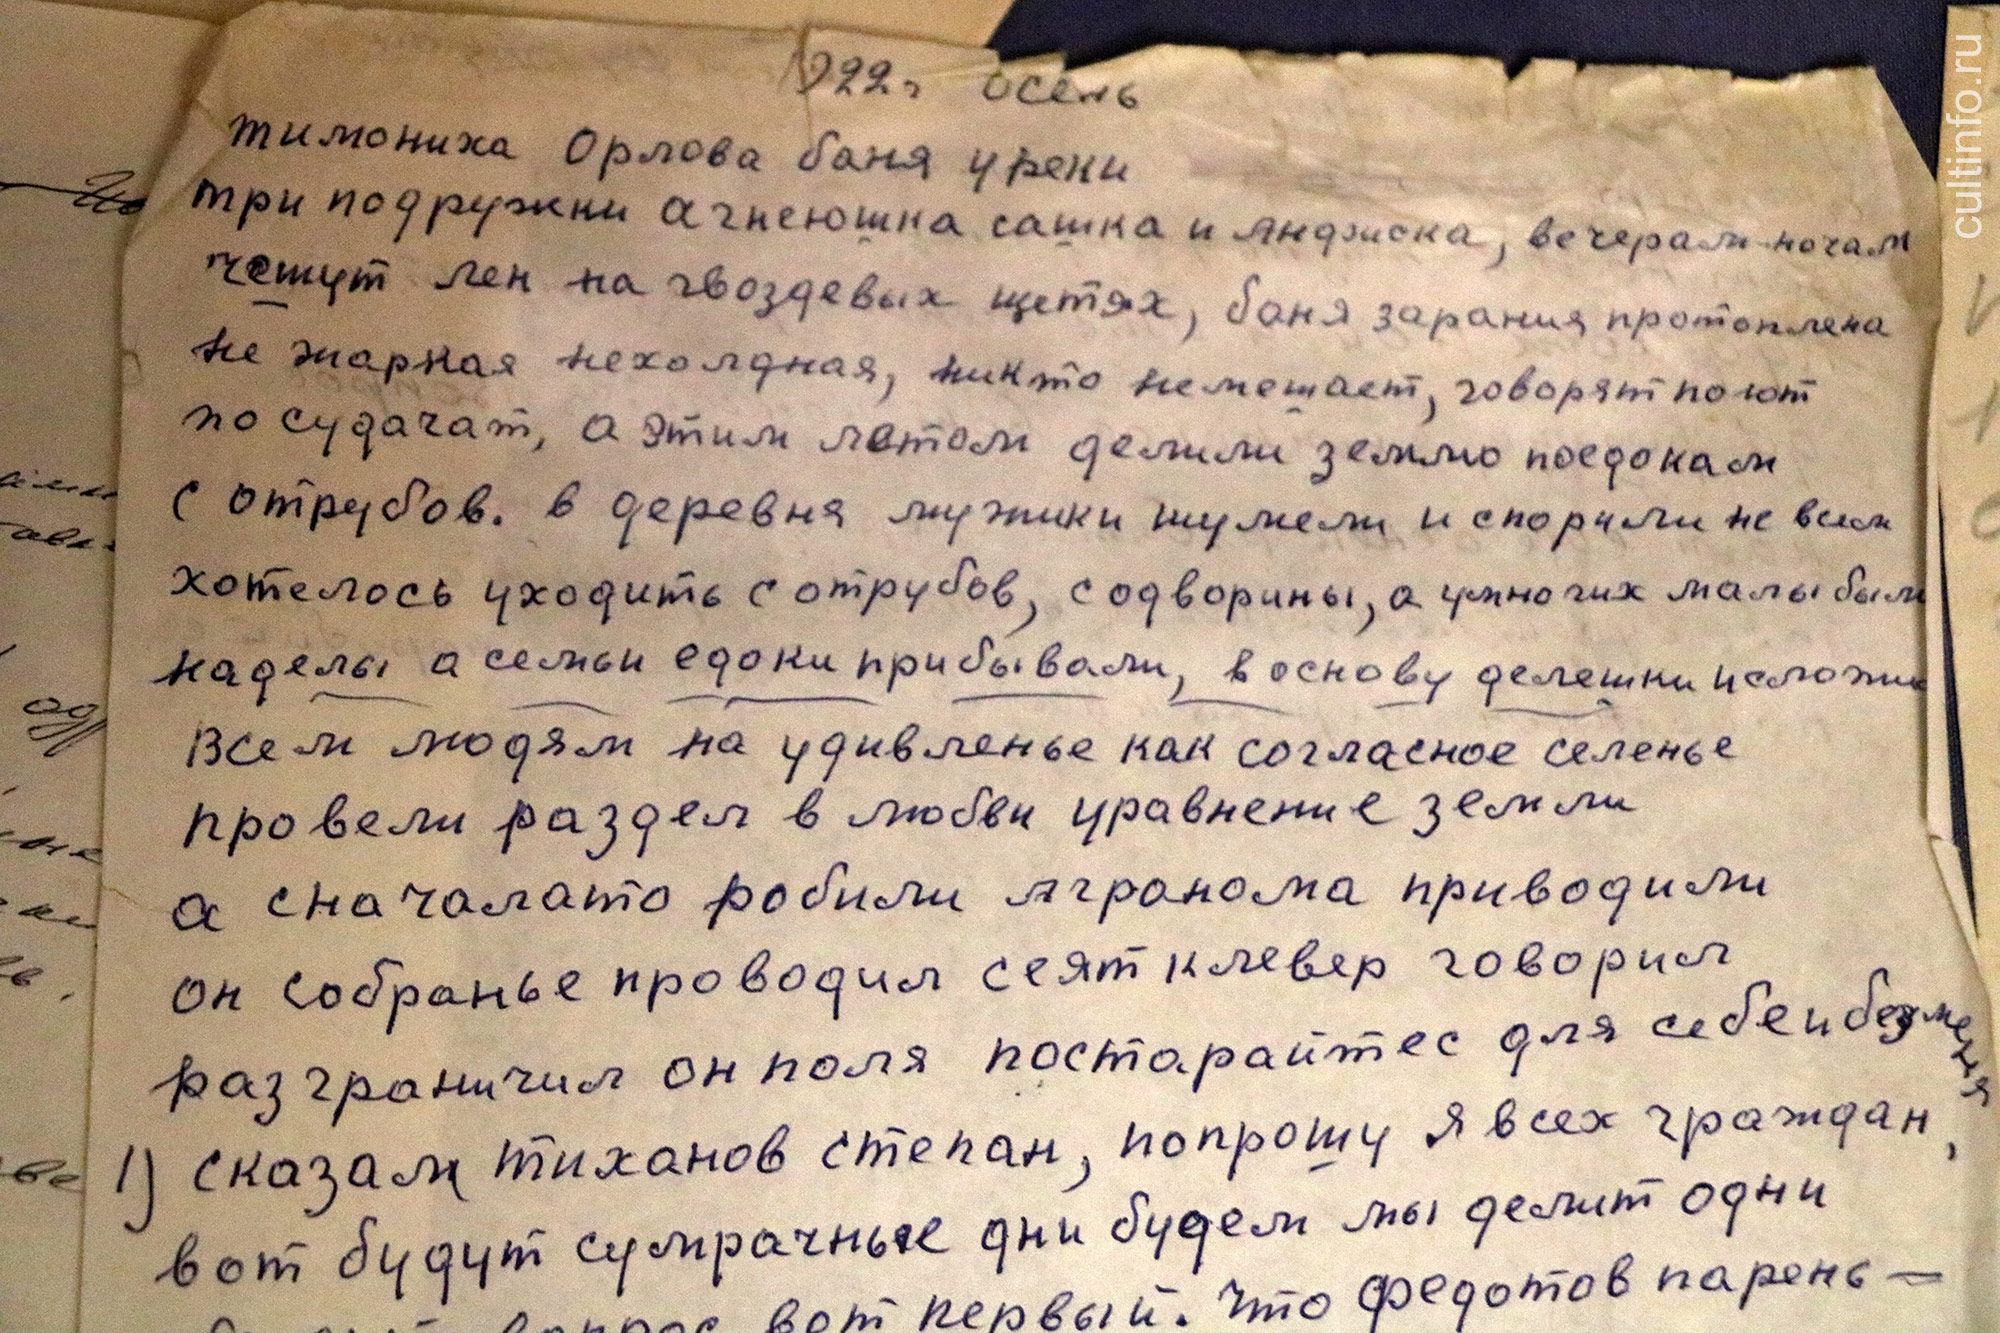 1922г осень
тимониха Орлова баня у реки
три подружки агнеюшка сашка и янфиска, вечерам ночам
чешут лен на гвоздевых щетях, баня зарания протоплена
не жаркая нехолдная, никто немешает, говорят поют
по судачат, а этим летом делили землю поедокам
с отрубов. в деревня мужики шумели и спорили не всем
хотелось уходить с отрубов, с одворины, а умногих малы были
наделы а семьи едоки прибывали, в основу делешки исложи
всем людям на удивленье как согласное селенье
провели раздел в любви уравнение земли
а сначалато робили ягранома приводили
он собранье проводил сеят клевер говорил
разграничил он поля постарайтес для себе и без меня
1) сказал тиханов степан, попрошу я всех граждан,
вот будут сумрачные дни будем мы делит одни
вопрос вот первый. что федотов парень —
cultinfo.ru